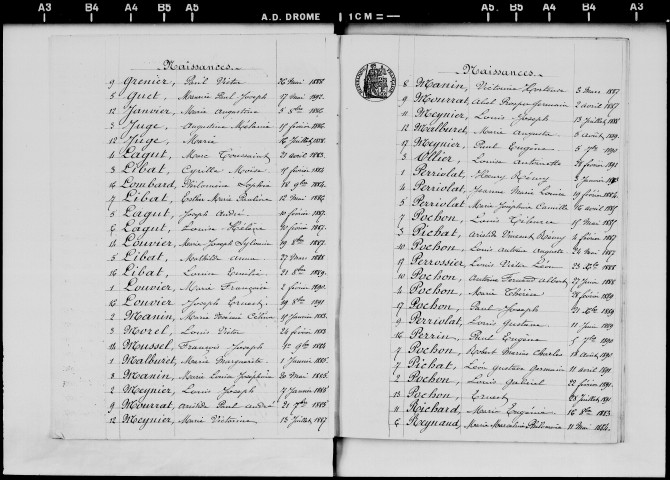 A3 B4 A4 B5 A5 A.D. DROME 1CM= A5 B5 A4 B4 A3
Naissances.
9 Grenier, Paul Victor 26 Mai 1888
5 Guet, Maurice Paul Joseph 17 Mai 1892.
12 Janvier, Marie Augustine
3 Juge, Augustine Mélanie 15 février 1886
12 Juge, Marie 16 Juillet 1888
4 Lagut, Marc Toussaint 21 avril 1883.
3 Libat, Cyrille Moïse 15 février 1884
16 Lombard, Philomène Sophie 18 9bre 1884.
7 Libat, Esther Marie Pauline 12 Mai
5 Lagut, Joseph André 11 février 1887.
6 Lagut, Louise Hélène février 1887.
14 Louvier, Marie Joseph Sylvain 29 8bre 1887.
5 Libat, Mathilde Anna 27 Mars 1888
16 Libat, Louise Emilie 21 8bre 1889.
1 Louvier, Marie Françoise 2 février 1890.
16 Louvier Joseph Ernest 29 8bre 1891
2 Manin, Marie Célina 15 Janvier 1883.
3 Morel, Louis Victor 24 février 1883.
14 Mussel, François Joseph 1er 9bre 1884
1 Malburet, Marie Marguerite 1 Janvier 1885.
8 Manin, Marie Louise Joséphine 20 Mai 1885.
2 Meynier, Louis Joseph 17 Janvier 1885
9 Mourrat, Aristide Paul André 21 7bre 1885
12 Meynier, Marie Victorine 13 Juillet 1887
Naissances.
8 Manin, Victorine Hortense 3 Mars 1887
9 Mourrat, Prosper Germain 2 avril 1887
11 Meynier, Louis Joseph 13 Juillet 1888
12 Malburet, Marie Augusta août 1889.
17 Meynier, Paul Eugène 5 7bre 1890
3 Ollier, Louise Antoinette février 1891
1 Perriolat, Henry Rémy 3 Janvier 1883
4 Perriolat, Jeanne Marie Louise 19 février 1884
5 Perriolat, Marie Joséphine Camille 16 avril 1885
7 Pochon, Louis Tiburce 15 Mai 1885
3 Pichat, Aristide Vincent Rémy 4 février 1887
10 Pochon, Louis Antoine Auguste 24 Mai 1887
19 Perrossier, Louis Victor Léon 23 Xbre 1888
10 Pochon, Antoine Fernand Albert 27 Juin 1888
4 Pochon, Marie Thérèse 28 février 1889
17 Pochon, Paul Joseph 21 Xbre 1889
9 Perriolat, Louis Gustave 11 Juin 1889
16 Perrin, Paul Eugène 5 7bre 1890
9 Pochon, Robert Marius Charles 18 Août 1890
7 Pichat, Léon Gustave Germain 11 avril 1891
2 Pochon, Louis Gabriel 22 février 1891.
13 Pochon, Ernest 28 Juillet 1891
11 Richard, Marie Eugénie 16 8bre 1883.
6 Reynaud, Marie Marceline Philomène 11 Mai 1884.